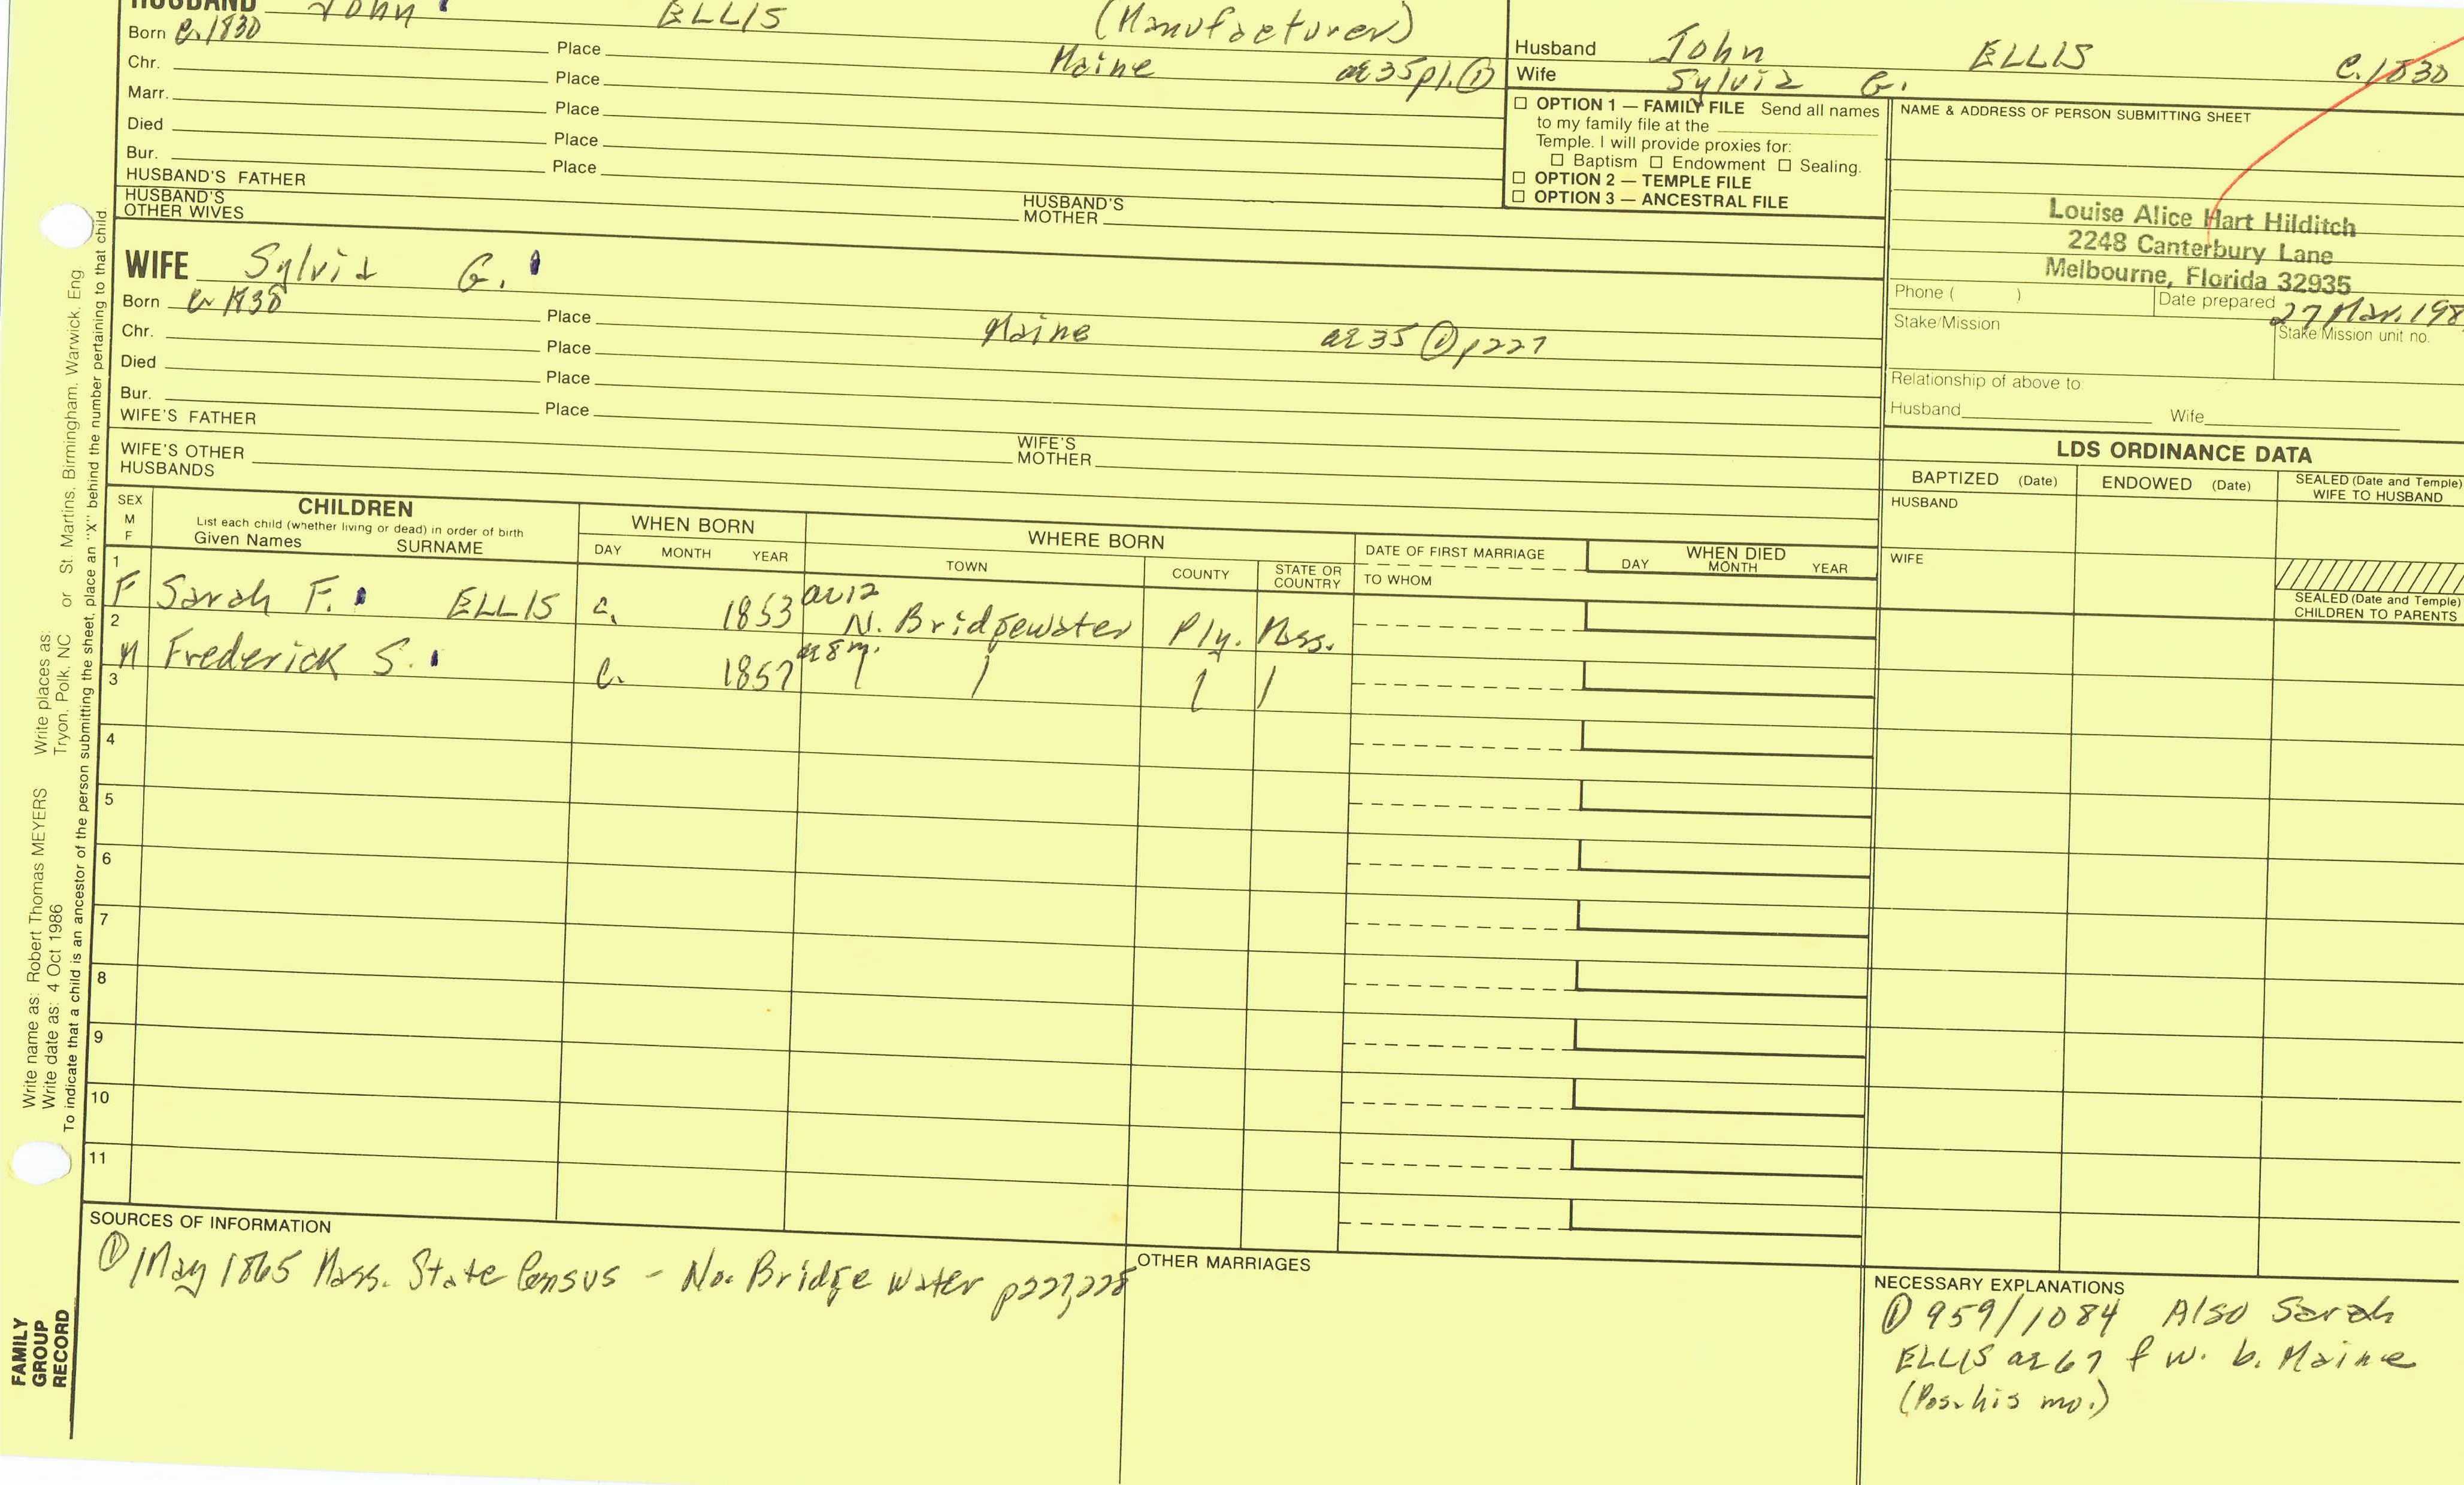 HUSBAND John ELLIS (Manufacturer)
Born c. 1830 Place Maine ae 35 p1. ①
Chr. Place
Marr. Place
Died Place
Bur. Place
HUSBAND'S FATHER
HUSBAND'S MOTHER
HUSBAND'S OTHER WIVES
Husband John ELLIS c. 1830
Wife Sylvia G.
☐ OPTION 1 — FAMILY FILE Send all names
to my family file at the
Temple. I will provide proxies for:
☐ Baptism ☐ Endowment ☐ Sealing.
☐ OPTION 2 — TEMPLE FILE
☐ OPTION 3 — ANCESTRAL FILE
NAME & ADDRESS OF PERSON SUBMITTING SHEET
Louise Alice Hart Hilditch
2248 Canterbury Lane
Melbourne, Florida 32935
Phone ( ) Date prepared 27 Mar. 198
Stake/Mission Stake/Mission unit no.
Relationship of above to:
Husband Wife
WIFE Sylvia G.
Born c. 1830 Place Maine ae 35 ① p227
Chr. Place
Died Place
Bur. Place
WIFE'S FATHER
WIFE'S MOTHER
WIFE'S OTHER HUSBANDS
LDS ORDINANCE DATA
BAPTIZED (Date) ENDOWED (Date) SEALED (Date and Temple) WIFE TO HUSBAND
HUSBAND
WIFE
SEALED (Date and Temple) CHILDREN TO PARENTS
SEX M F
CHILDREN
List each child (whether living or dead) in order of birth
Given Names SURNAME
WHEN BORN
DAY MONTH YEAR
WHERE BORN
TOWN COUNTY STATE OR COUNTRY
DATE OF FIRST MARRIAGE
TO WHOM
WHEN DIED
DAY MONTH YEAR
1 F Sarah F. ELLIS c. 1853 ae 12 N. Bridgewater Ply. Mass.
2 M Frederick S. c. 1857 ae 8 m.
3
4
5
6
7
8
9
10
11
SOURCES OF INFORMATION
① May 1865 Mass. State Census - No. Bridge water p227,228
OTHER MARRIAGES
NECESSARY EXPLANATIONS
① 959/1084 Also Sarah
ELLIS ae 67 f w. b. Maine
(Pos. his mo.)
Write name as: Robert Thomas MEYERS Write places as: St. Martins, Birmingham, Warwick, Eng
Write date as: 4 Oct 1986 Tryon, Polk, NC or
To indicate that a child is an ancestor of the person submitting the sheet, place an "X" behind the number pertaining to that child.
FAMILY
GROUP
RECORD